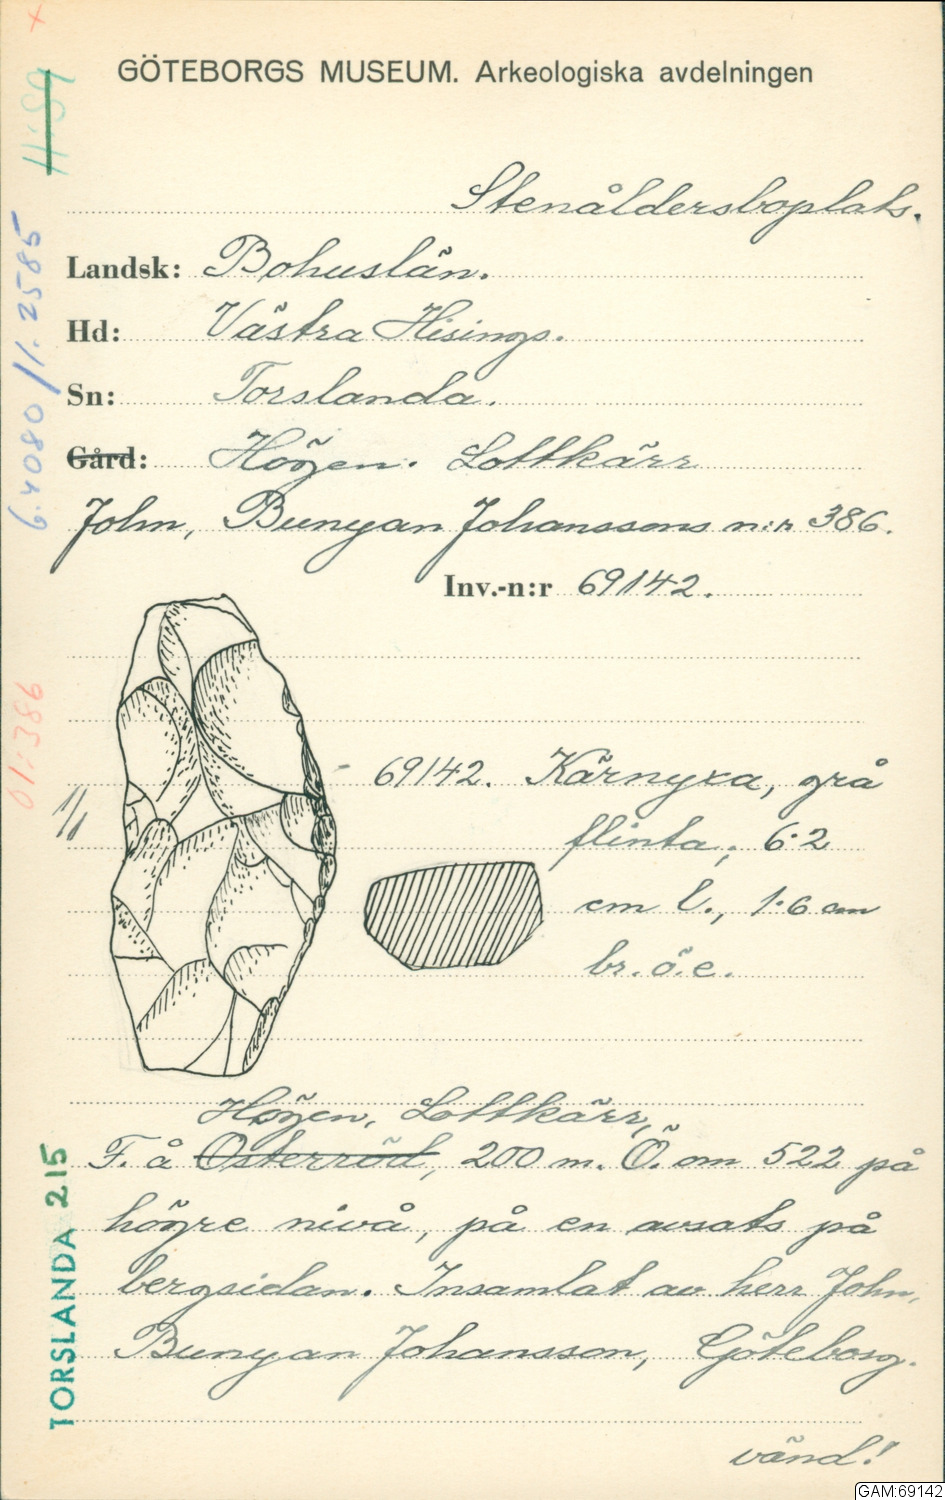 GÖTEBORGS MUSEUM. Arkeologiska avdelningen
Stenåldersboplats.
Landsk: Bohuslän.
Hd: Västra Hisings.
Sn: Torslanda.
Gård: Högen. Lottkärr
John, Bunyan Johanssons n:r 386.
Inv.-n:r 69142.
69142. Kärnyxa, grå
flinta, 6·2
cm l., 1·6 cm
br. ö. e.
1/1
Högen, Lottkärr,
F. å Österröd, 200 m. Ö. om 522 på
högre nivå, på en avsats på
bergsidan. Insamlat av herr John,
Bunyan Johansson, Göteborg.
vänd!
01:386
TORSLANDA 215
GAM:69142